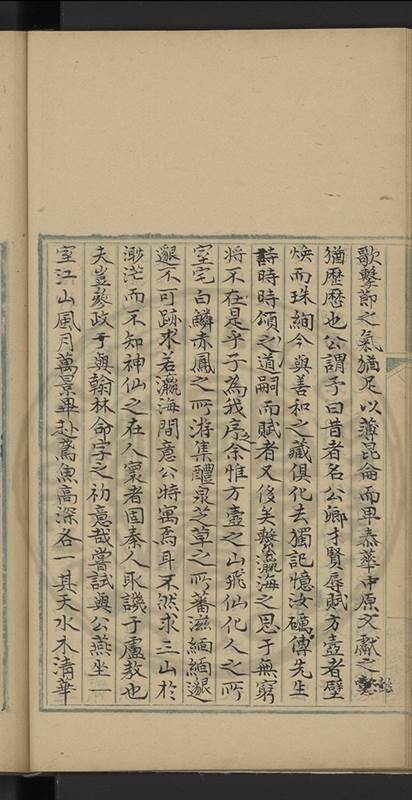 歌擊節之氣猶足以薄崑侖而卑泰華中原文獻之懿
猶歷歷也公謂予曰昔者名公卿才賢辱賦方壺者璧
煥而珠絢今與善和之藏俱化去獨記憶汝礪傅先生
詩時時頌之道嗣而賦者又後矣繫瀛海之思于無窮
將不在是乎子為我序之余惟方壺之山飛仙化人之所
室宅白鱗赤鳳之所游集醴泉芝草之所蕃滋緬緬邈
邈不可跡求若瀛海間意公特寓焉耳不然求三山於
渺茫而不知神仙之在人寰者固秦人取譏于盧敖也
夫豈參政于與翰林命字之初意哉嘗試與公燕坐一
室江山風月萬景畢赴鳶魚高深各一其天水木清華